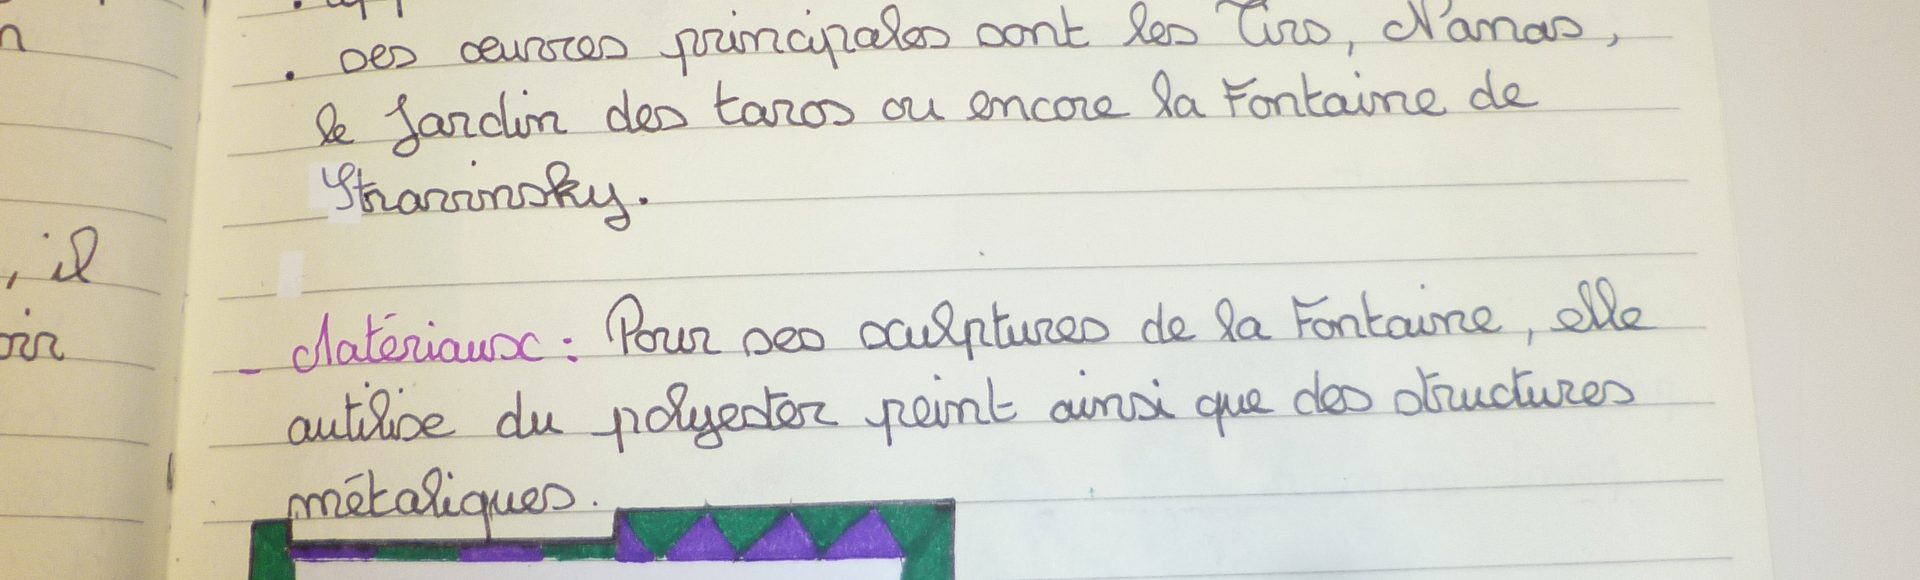 n
. Ses œuvres principales sont les Tirs, Nanas,
le Jardin des taros ou encore la Fontaine de
Stravinsky.
, il
- Matériaux : Pour ses sculptures de la Fontaine, elle
oir
autilise du polyester peint ainsi que des structures
métaliques.